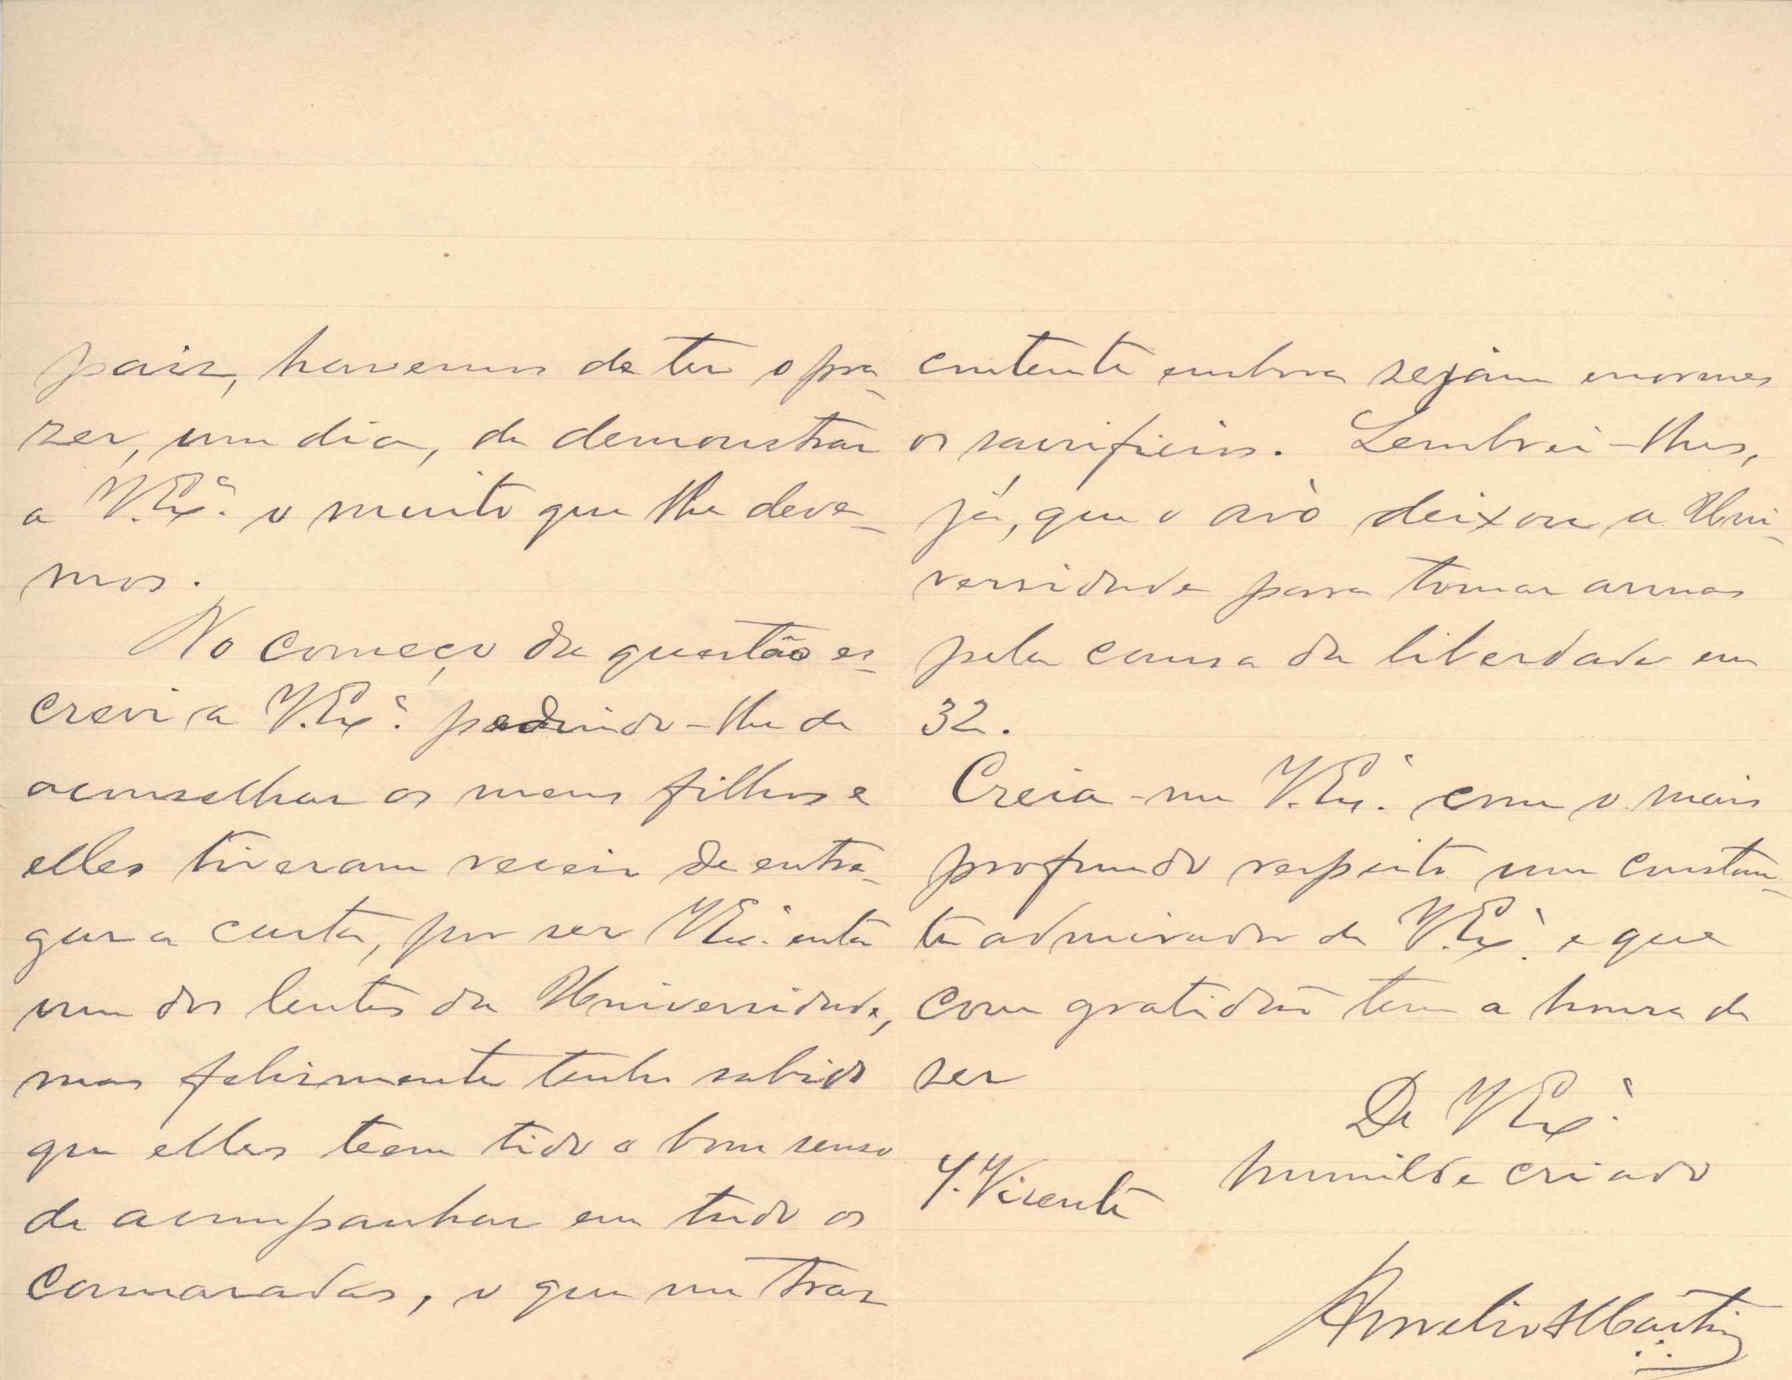 paiz, havemos de ter o pra-
zer, um dia, de demonstrar
a V. Exª. o muito que lhe deve-
mos.
No começo da questão es-
crevi a V. Exª. pedindo-lhe de
aconselhar os meus filhos e
elles tiveram receio de entre-
gar a carta, por ser V Exª. então
um dos lentes da Universidade,
mas felizmente tenho sabido
que elles teem tido o bom senso
de acompanhar em tudo os
camaradas, o que me traz
contente embora sejam enormes
os sacrificios. Lembrei-lhes,
já, que o avô deixou a Uni-
versidade para tomar armas
pela causa da liberdade em
32.
Creia-me V. Exª. com o mais
profundo respeito um constan-
te admirador de V. Exª. e que
com gratidão tem a honra de
ser
De V Exª.
humilde criado
S. Vicente
Aurelio Martins